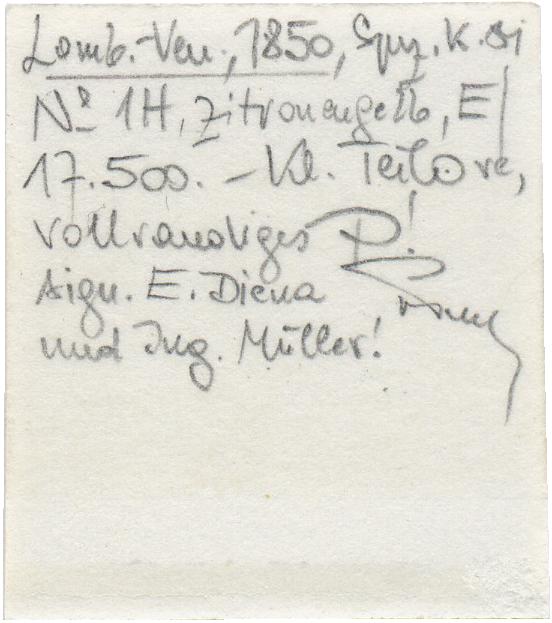 Lomb.-Ven., 1850, Spez. K. Bi
Nº 1H, zitronengelb, E/
17.500. – Kl. Teilore,
vollrandiges P!
sign. E. Diena
und Ing. Müller!